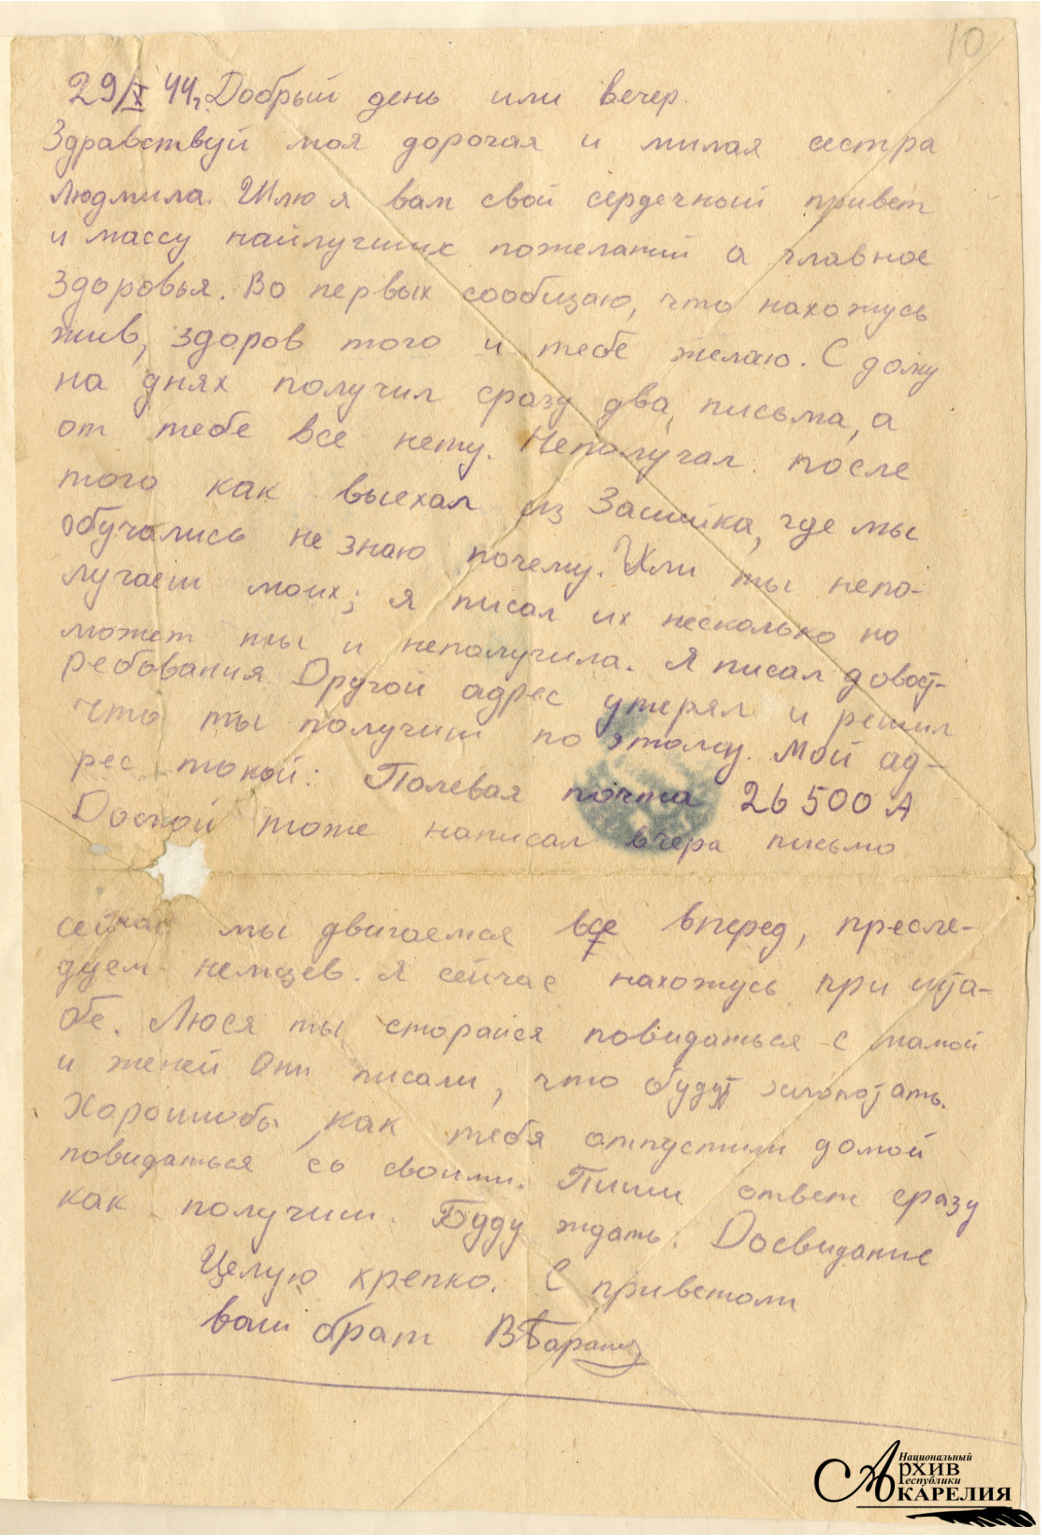 10
29/X 44г. Добрый день или вечер.
Здравствуй моя дорогая и милая сестра
Людмила. Шлю я вам свой сердечный привет
и массу найлучших пожеланий а главное
здоровья. Во первых сообщаю, что нахожусь
жив, здоров того и тебе желаю. С дому
на днях получил сразу два, письма, а
от тебе все нету. Неполучал после
того как выехал из, где мы
обучались не знаю почему. Или ты непо-
лучаеш моих; я писал их несколько но
может ты и неполучила. Я писал довост-
ребования Другой адрес утерял и решил
что ты получиш по этому. Мой ад-
рес такой: Полевая почта 26500 А
Домой тоже написал вчера письмо
сейчас мы двигаемся все вперед, пресле-
дуем немцев. Я сейчас нахожусь при шта-
бе. Люся ты старайся повидаться с мамой
и женей Они писали, что будут хлопотать.
Хорошобы как тебя отпустили домой
повидаться со своими. Пиши ответ сразу
как получиш. Буду ждать. Досвидание
Целую крепко. С приветом
ваш брат
Национальный
Архив
Республики
Карелия